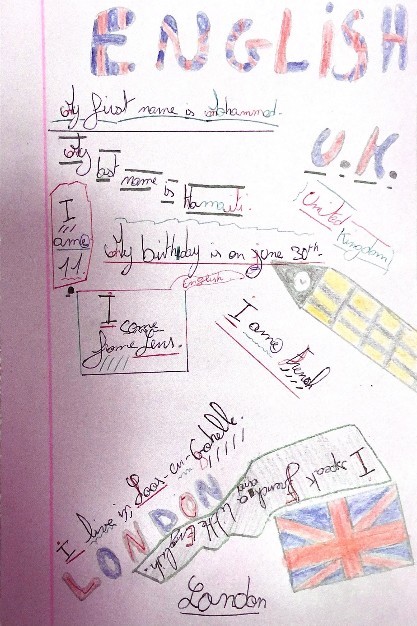 ENGLISH
My first name is Mohammed.
U.K.
My last name is Hamault.
United Kingdom
I ame 11.
My birthday is on june 30th.
English
I come frome Lens.
I ame french
I live in Loos-en-Gohelle.
I speak french and
a little English.
LONDON
London